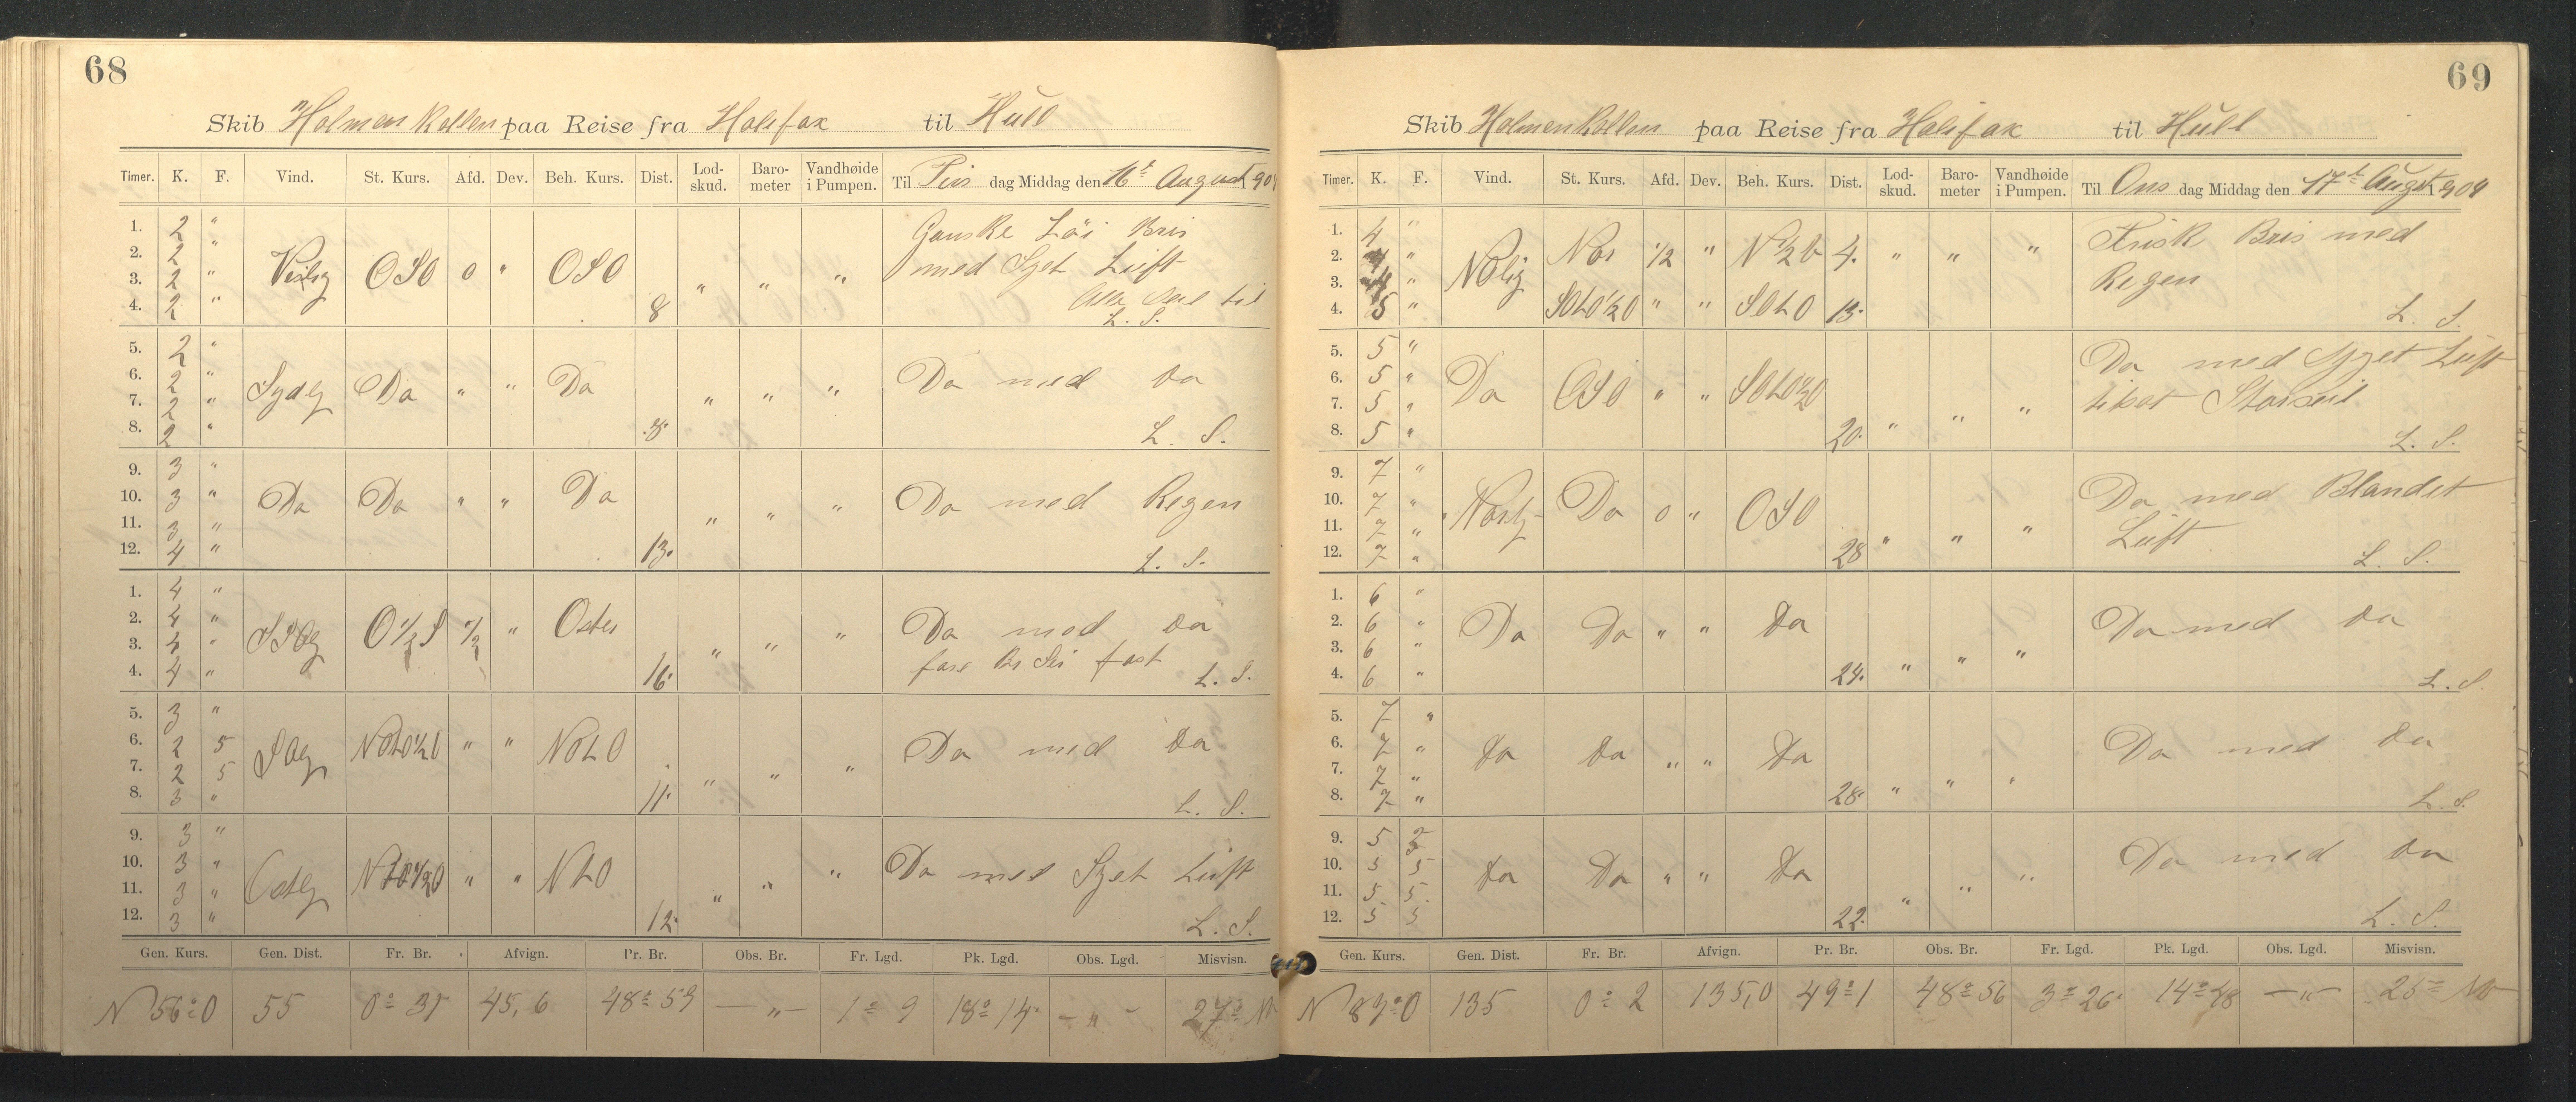 68
Skib Holmenkollen paa Reise fra Halifax til Hull
Timer. K. F. Vind. St. Kurs. Afd. Dev. Beh. Kurs. Dist. Lod-skud. Baro-meter Vandhøide i Pumpen. Til Tirs dag Middag den 16t August 1904
1. 2 " Ganske Löi Bris
2. 2 " Vestlig OSO 0 " OSO med Sget Luft
3. 2 " " " " Alle Seil til
4. 2 " 8 L. S.
5. 2 "
6. 2 " Sydlig Do " " Do Do med Do
7. 2 " " " "
8. 2 " 8. L. S.
9. 3 "
10. 3 " Do Do " " Do Do med Regen
11. 3 " " " "
12. 4 " 13. L. S.
1. 4 "
2. 4 " SSOlig O 1/2 S 1/2 " Osten Do med Do
3. 4 " " " "
4. 4 " 16. fast L. S.
5. 3 "
6. 2 5 SOlig NOtO1/2O " " NOtO Do med Do
7. 2 5 " " "
8. 3 " 11. L. S.
9. 3 "
10. 3 " Ostlig " " NtO Do med Sget Luft
11. 3 " " " "
12. 3 " 12. L. S.
Gen. Kurs. Gen. Dist. Fr. Br. Afvign. Pr. Br. Obs. Br. Fr. Lgd. Pk. Lgd. Obs. Lgd. Misvisn.
N 56° O 55 0° 31 45,6 48° 59 — " — 1° 9 18° 14 — " — 27° NV
69
Skib Holmenkollen paa Reise fra Halifax til Hull
Timer. K. F. Vind. St. Kurs. Afd. Dev. Beh. Kurs. Dist. Lod-skud. Baro-meter Vandhøide i Pumpen. Til Ons dag Middag den 17t Augst 1904
1. 4 " Frisk Bris med
2. 4 " NOlig Nor 1/2 " 4. " " " Regen
3. 4 "
4. 5 " SOtO1/2O " " SOtO 13. L. S.
5. 5 " Do med Sget Luft
6. 5 " Do OSO " " SOtO1/2O
7. 5 " " " " Storseil
8. 5 " 20. L. S.
9. 7 " Do med Blandet
10. 7 " Nordlig Do 0 " OSO Luft
11. 7 " " " "
12. 7 " 28 L. S.
1. 6 "
2. 6 " Do Do " " Do Do med Do
3. 6 " " " "
4. 6 " 24. L. S.
5. 7 "
6. 7 " Do Do " " Do Do med Do
7. 7 " " " "
8. 7 " 28. L. S.
9. 5 5
10. 5 5 Do Do " " Do Do med Do
11. 5 5 " " "
12. 5 5 22. L. S.
Gen. Kurs. Gen. Dist. Fr. Br. Afvign. Pr. Br. Obs. Br. Fr. Lgd. Pk. Lgd. Obs. Lgd. Misvisn.
N 89° O 135 0° 2 135,0 49° 1 48° 56 3° 26 14° 48 — " — 25° NV